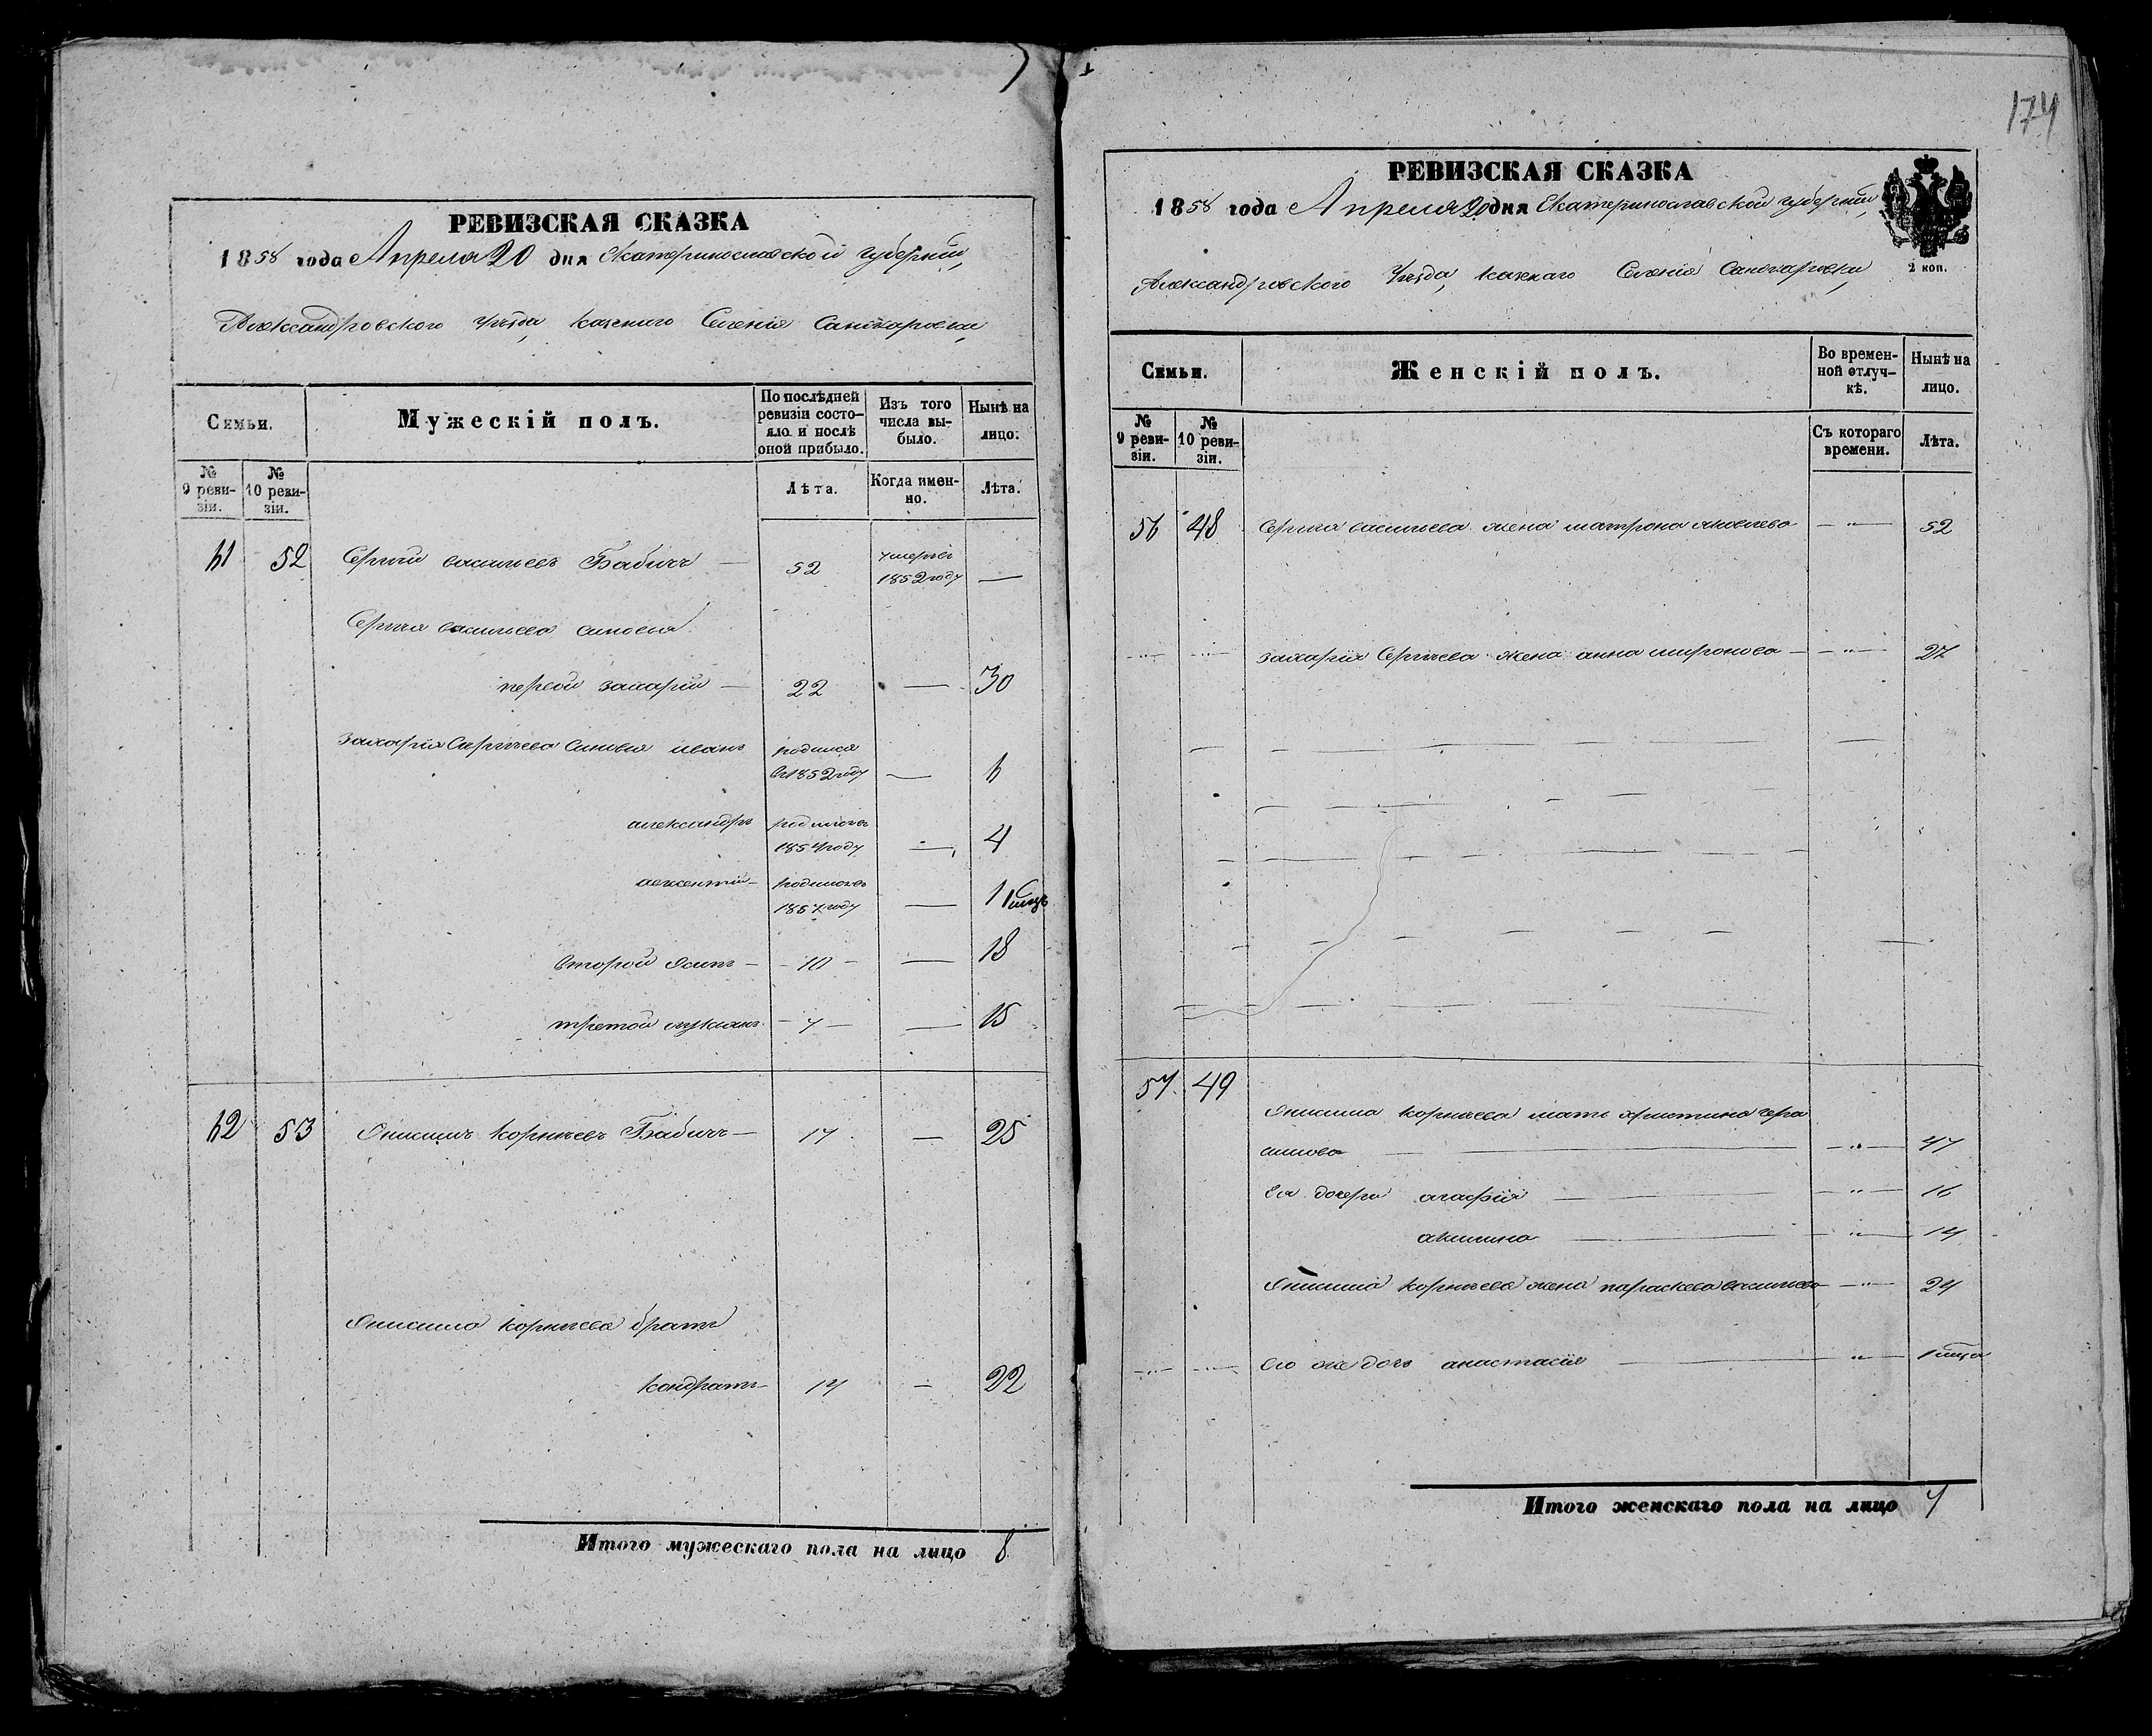 РЕВИЗСКАЯ СКАЗКА
1858 года Апреля 20 дня Екатеринославской губернии,
Александровского Уезда, казенаго Селения Санжаровки,
Семьи.
Мужескій полъ.
По послѣдней ревизіи состояло и послѣ оной прибыло.
Изъ того числа выбыло.
Нынѣ на лицо.
№ 9 ревизіи.
№ 10 ревизіи.
Лѣта.
Когда именно.
Лѣта.
61 52 Сергій васильевъ Бабичъ — 52 умеръ въ 1852 году —
Сергия васильева синовья
первой захарий — 22 — 30
захария Сергиева Синовья иванъ родился въ 1852 году — 6
александръ родился въ 1854 году — 4
родился въ 1857 году — 1
второй Осипъ — 10 — — 18
третой лукианъ — 7 — — 15
62 53 Онисимъ корниевъ Бабичъ — 17 — 25
Онисима корниева братъ
кондратъ — 14 — 22
Итого мужескаго пола на лицо 8
174
РЕВИЗСКАЯ СКАЗКА
1858 года Апреля 20 дня Екатеринославской губернии,
2 коп.
Александровского Уезда, казенаго Селения Санжаровки,
Семьи.
Женскій полъ.
Во временной отлучкѣ.
Нынѣ на лицо.
№ 9 ревизіи.
№ 10 ревизіи.
Съ котораго времени.
Лѣта.
56 48 Сергия васильева жена матрона яковлева — " — 52
захария Сергиева жена анна миронова — " — 27
57 49
Онисима корниева мать христина гера
симова — " — 47
Ея дочери агафия — " — 16
акилина — " — 14
Онисима корниева жена параскева васильева — " — 24
его же дочь анастасия — " 1
Итого женскаго пола на лицо 7